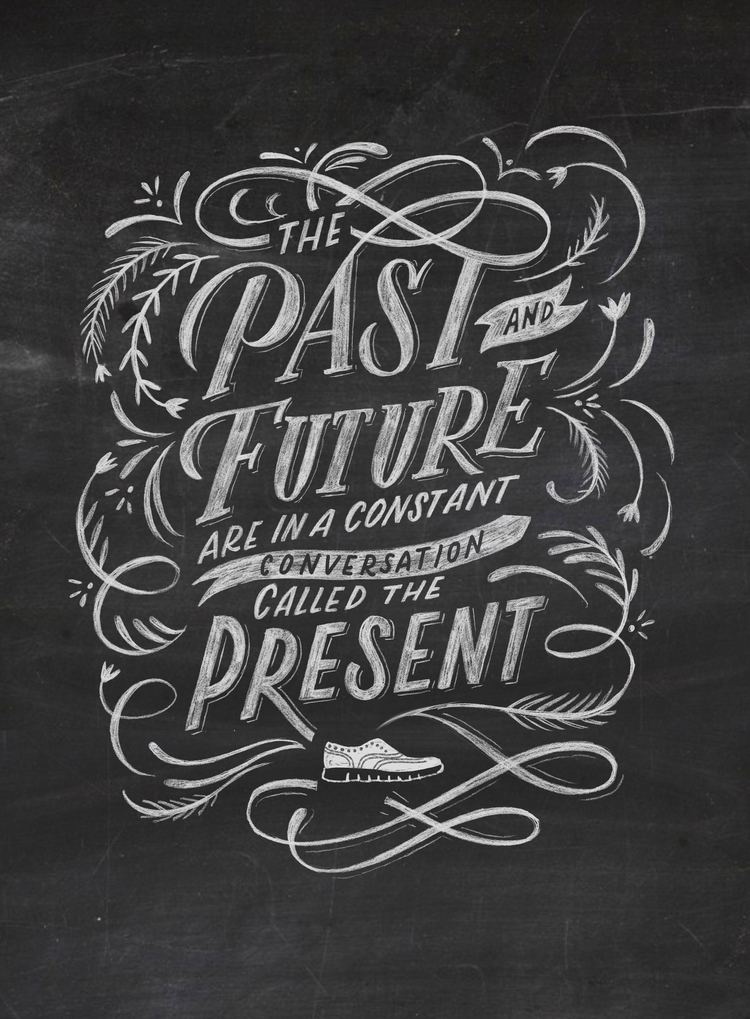 THE
PAST AND
FUTURE
ARE IN A CONSTANT
CONVERSATION
CALLED THE
PRESENT